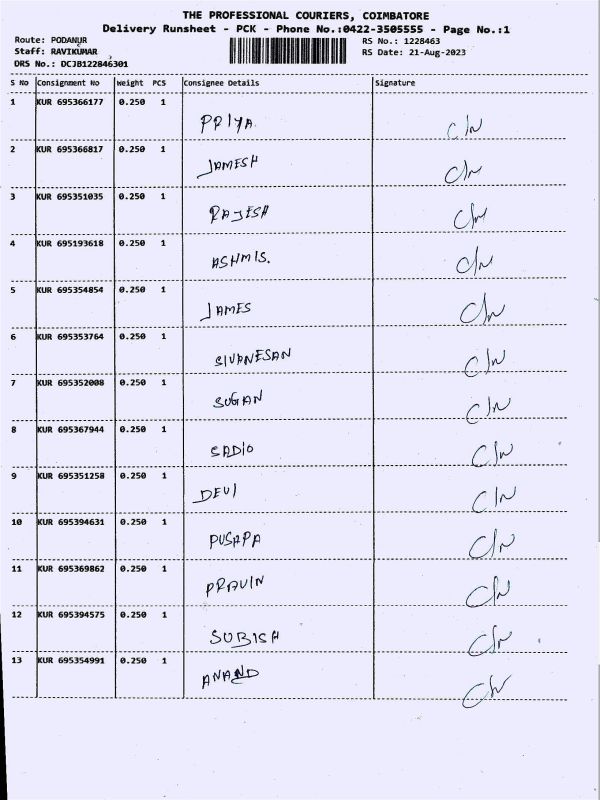 THE PROFESSIONAL COURIERS, COIMBATORE
Delivery Runsheet - PCK - Phone No.:0422-3505555 - Page No.:1
Route: PODANUR
RS No.: 1228463
Staff: RAVIKUMAR
RS Date: 21-Aug-2023
DRS No.: DCJB122846301
S No Consignment No Weight PCS Consignee Details Signature
1 KUR 695366177 0.250 1
PRIYA. C/N
2 KUR 695366817 0.250 1
JAMESH C/N
3 KUR 695351035 0.250 1
RAJESH C/N
4 KUR 695193618 0.250 1
ASHMIS. C/N
5 KUR 695354854 0.250 1
JAMES C/N
6 KUR 695353764 0.250 1
SIVANESAN C/N
7 KUR 695352008 0.250 1
SUGAN C/N
8 KUR 695367944 0.250 1
SADIO C/N
9 KUR 695351258 0.250 1
DEVI C/N
10 KUR 695394631 0.250 1
PUSAPA C/N
11 KUR 695369862 0.250 1
PRAVIN C/N
12 KUR 695394575 0.250 1
SUBISH C/N
13 KUR 695354991 0.250 1
ANAND C/N